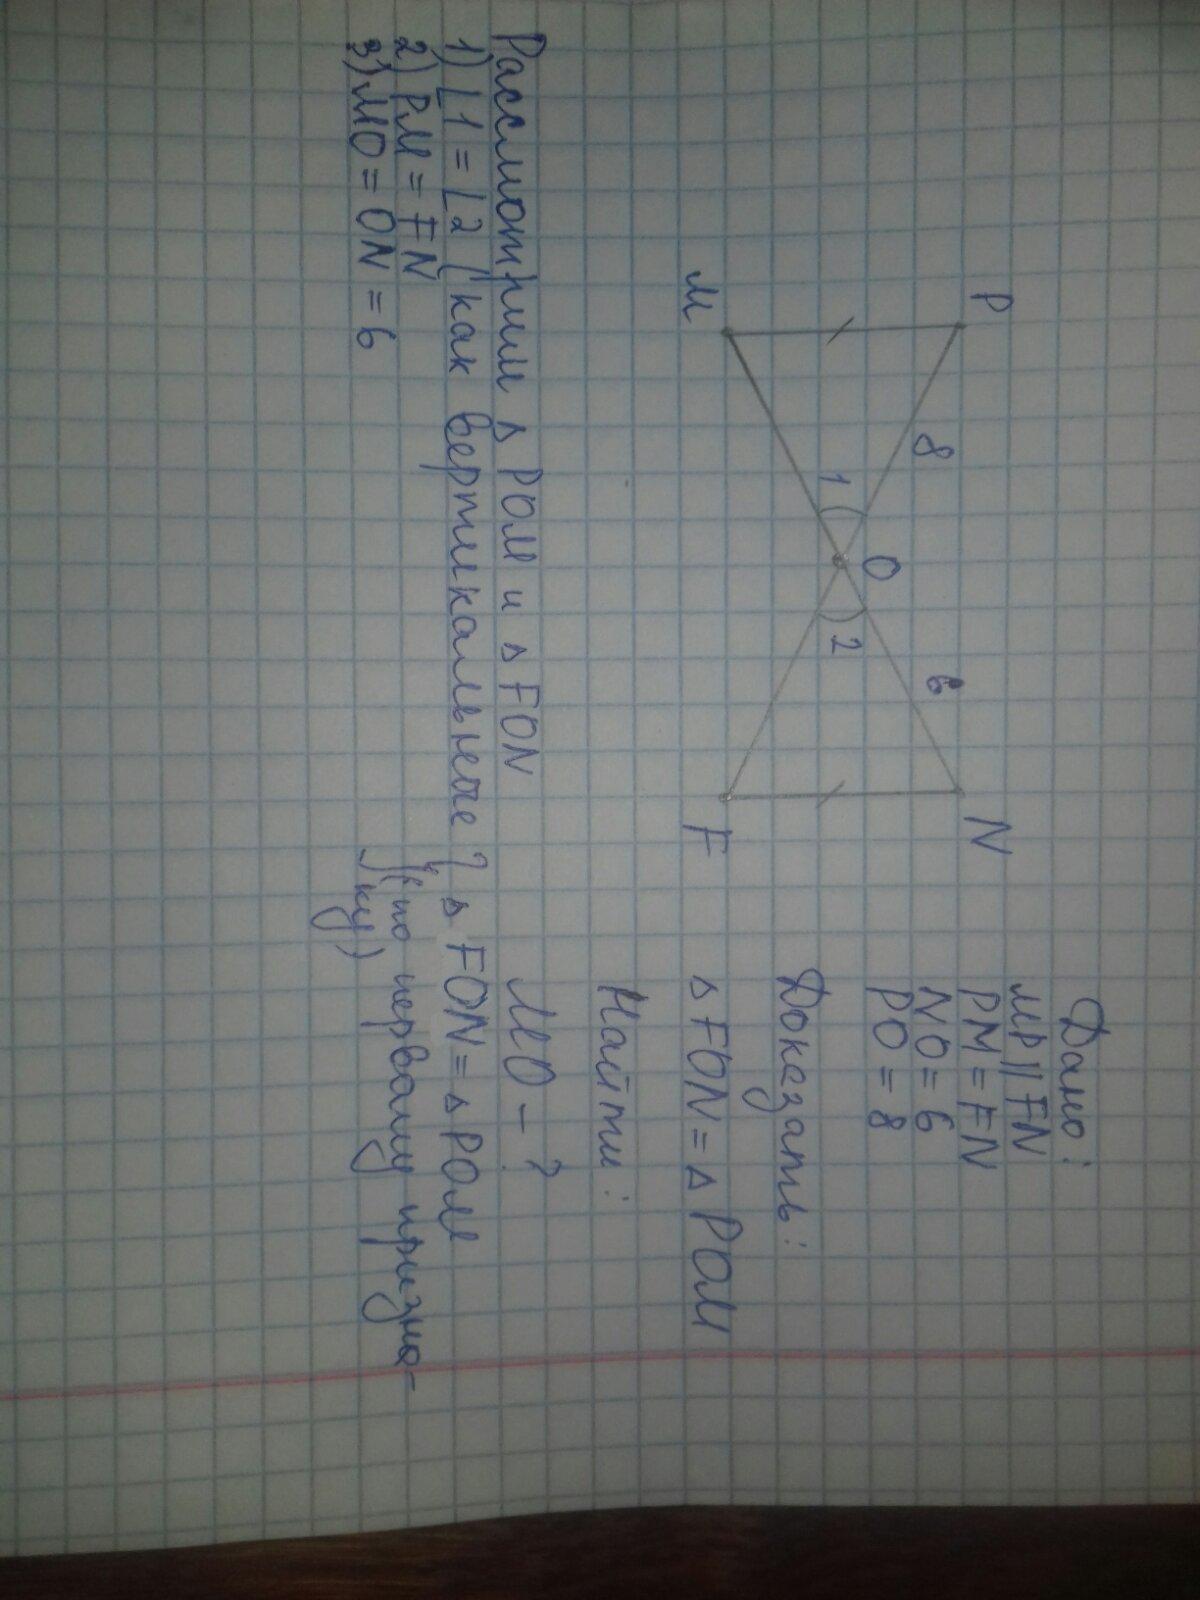 P
N
8
6
O
1
2
M
F
Дано:
MP || FN
PM = FN
NO = 6
PO = 8
Доказать:
∆ FON = ∆ POM
Найти:
MO - ?
Рассмотрим ∆ POM и ∆ FON
1) ∠1 = ∠2 (как вертикальные
2) PM = FN
3) MO = ON = 6
∆ FON = ∆ POM
(по первому призна-
ку)